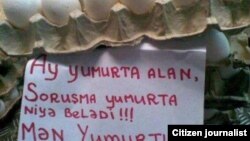 Ay yumurta alan,
Soruşma yumurta
niyə belədi!!!
Mən Yumurt
Citizen journalist